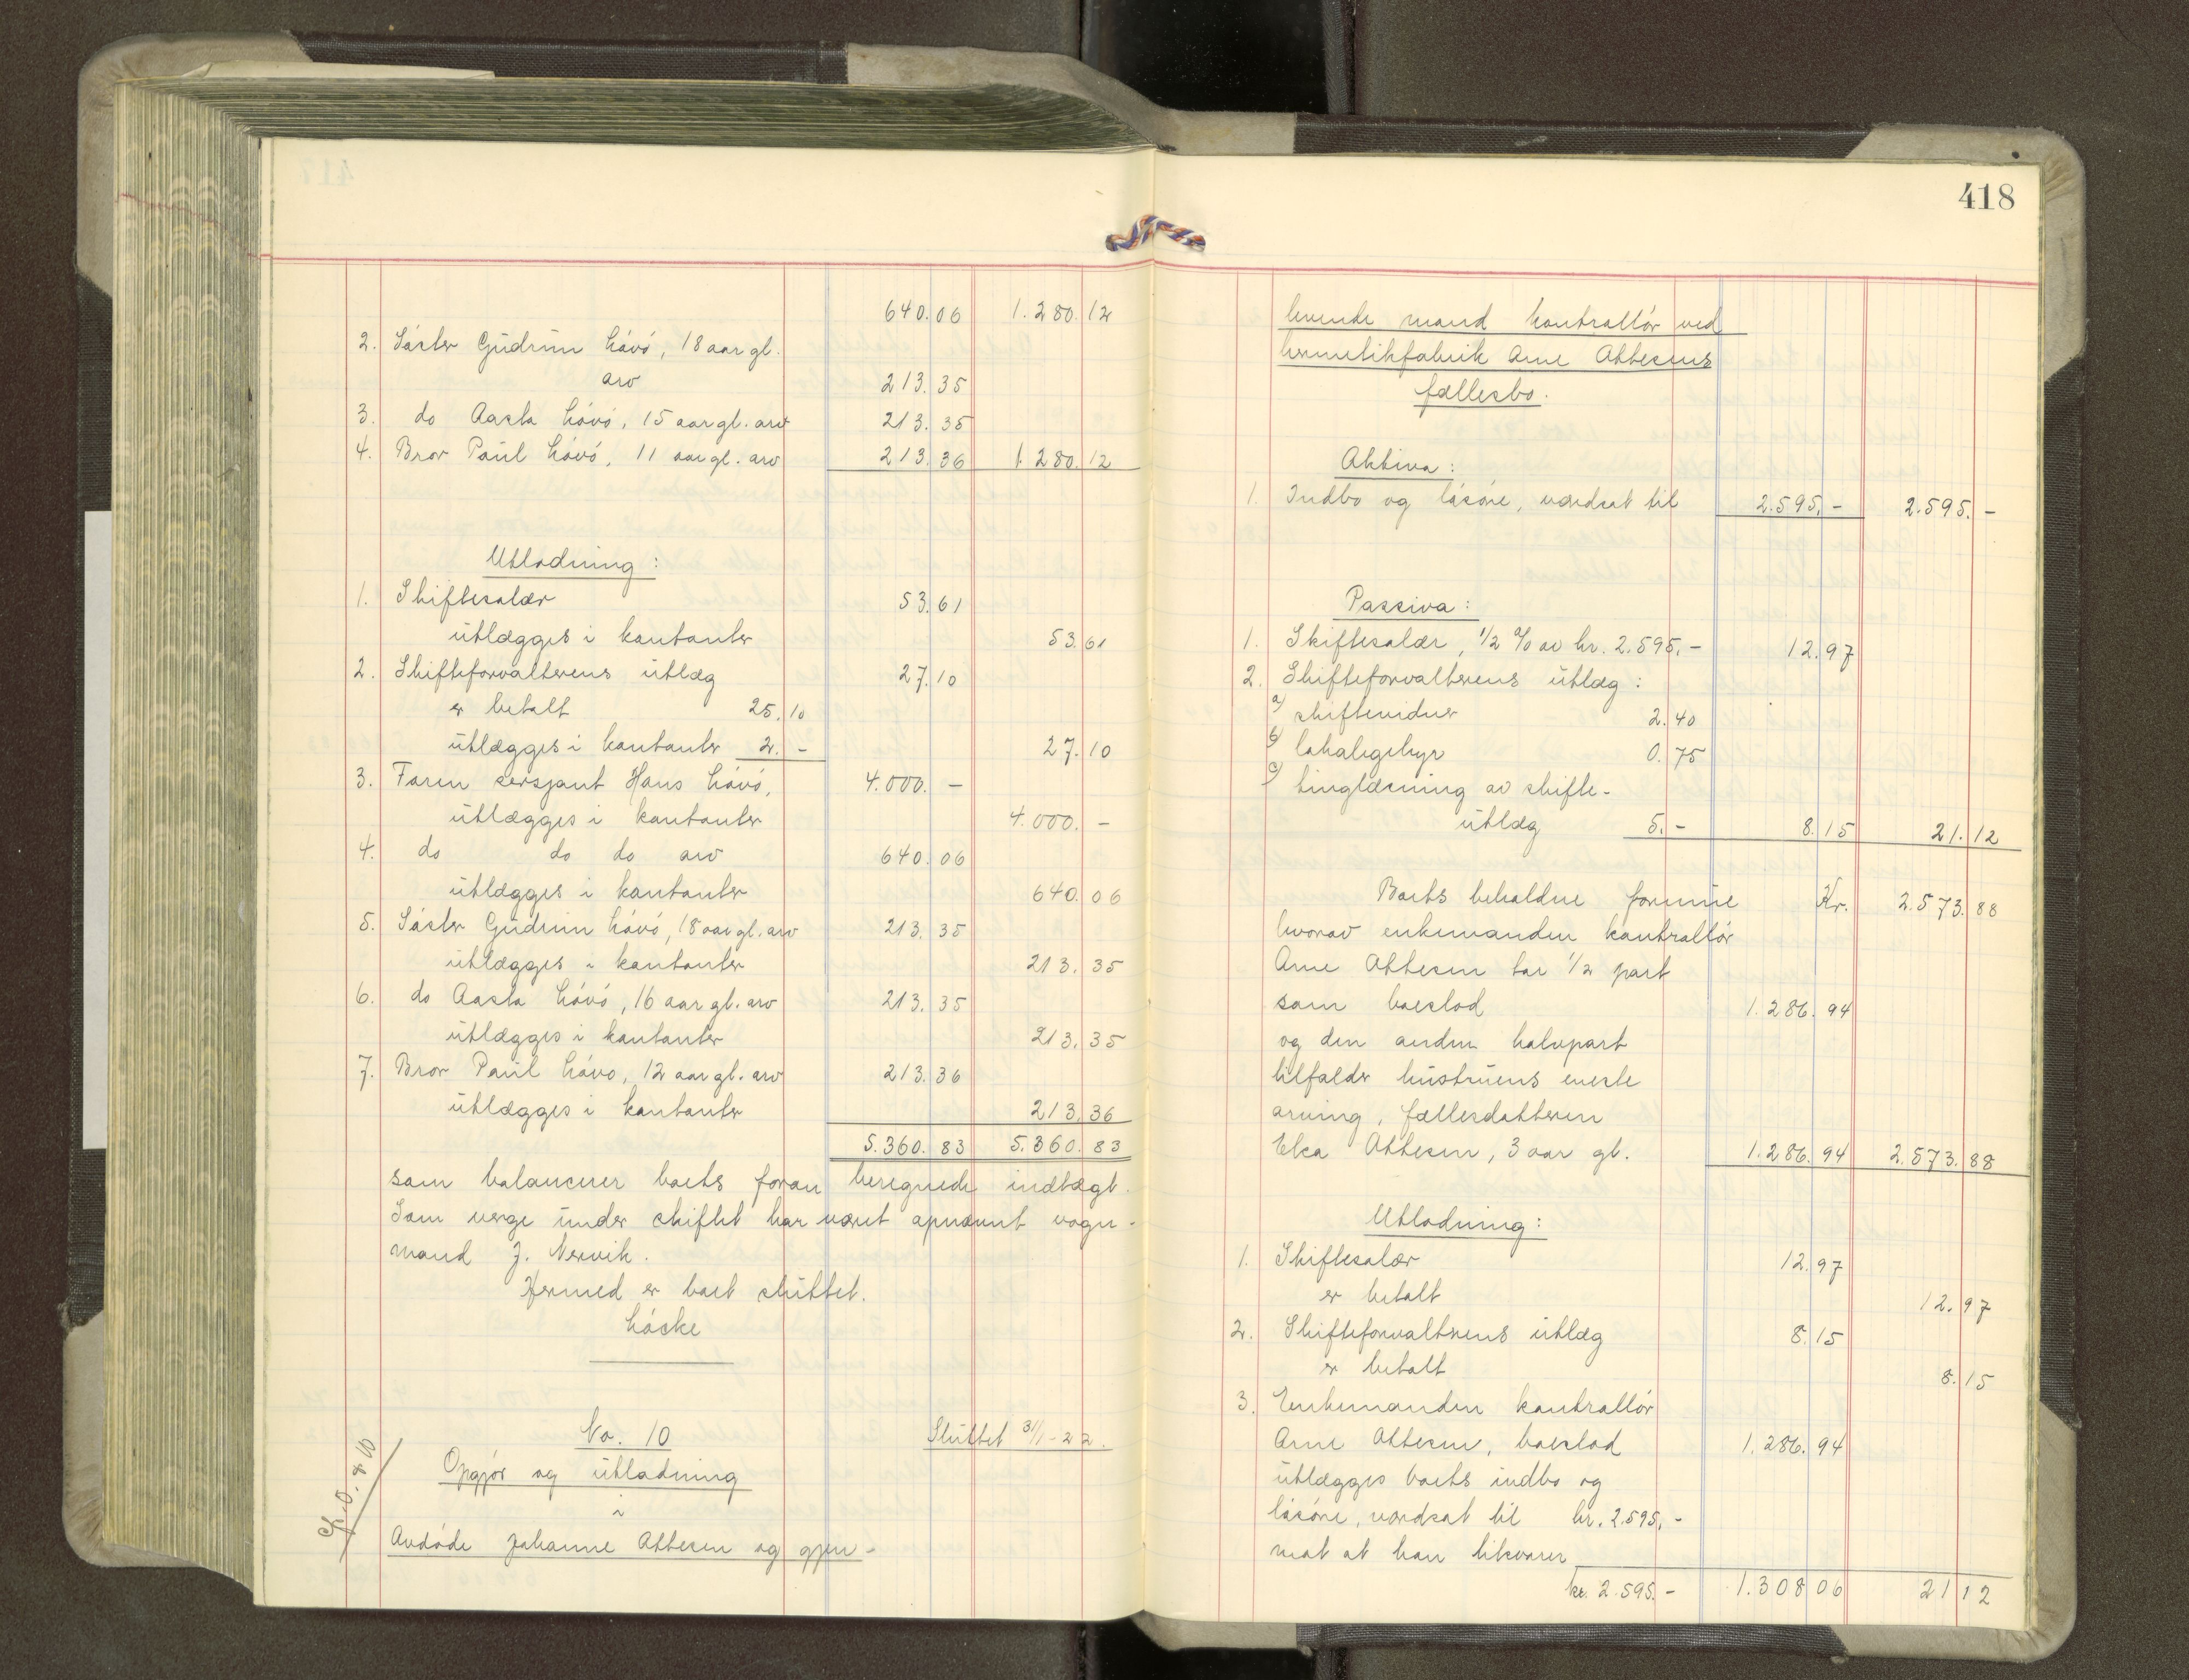 640.06 1.280.12
2. Søster Gudrun Løvø, 18 aar gl.
arv 213.35
3. do Aasta Løvø, 15 aar gl. arv 213.35
4. Bror Paul Løvø, 11 aar gl. arv 213.36 1.280.12
Utlodning:
1. Skiftesalær 53.61
utlægges i kontanter 53.61
2. Skifteforvalterens utlæg 27.10
er betalt 25.10
utlægges i kontanter 2.- 27.10
3. Faren sersjant Hans Løvø, 4.000.-
utlægges i kontanter 4.000.-
4. do do do arv 640.06
utlægges i kontanter 640.06
5. Søster Gudrun Løvø, 18 aar gl. arv 213.35
utlægges i kontanter 213.35
6. do Aasta Løvø, 16 aar gl. arv 213.35
utlægges i kontanter 213.35
7. Bror Paul Løvø, 12 aar gl. arv 213.36
utlægges i kontanter 213.36
5.360.83 5.360.83
som balancerer boets foran beregnede indtægt.
Som verge under skiftet har været opnævnt vogn-
mand J. Nervik.
Hermed er boet sluttet.
Løcke
No. 10 Sluttet 31/1-22.
Opgjør og utlodning
i
Avdøde Johanne Ottesen og gjen-
418
levende mand kontrollør ved
hermetikfabrik Arne Ottesens
fællesbo.
Aktiva:
1. Indbo og løsøre, værdsat til 2.595.- 2.595.-
Passiva:
1. Skiftesalær, 1/2 % av kr. 2.595.- 12.97
2. Skifteforvalterens utlæg:
a) skiftevidner 2.40
b) lokalgebyr 0.75
c) tinglæsning av skifte-
utlæg 5.- 8.15 21.12
Boets beholdne formue Kr. 2.573.88
hvorav enkemanden kontrollør
Arne Ottesen tar 1/2 part
som boeslod 1.286.94
og den anden halvpart
tilfalder hustruens eneste
arving, fællesdatteren
Elsa Ottesen, 3 aar gl. 1.286.94 2.573.88
Utlodning:
1. Skiftesalær 12.97
er betalt 12.97
2. Skifteforvalterens utlæg 8.15
er betalt 8.15
3. Enkemanden kontrollør
Arne Ottesen, boeslod 1.286.94
utlægges boets indbo og
løsøre, værdsat til kr. 2.595.-
mot at han tilsvarer
kr. 2.595.- 1.308 06 21 12